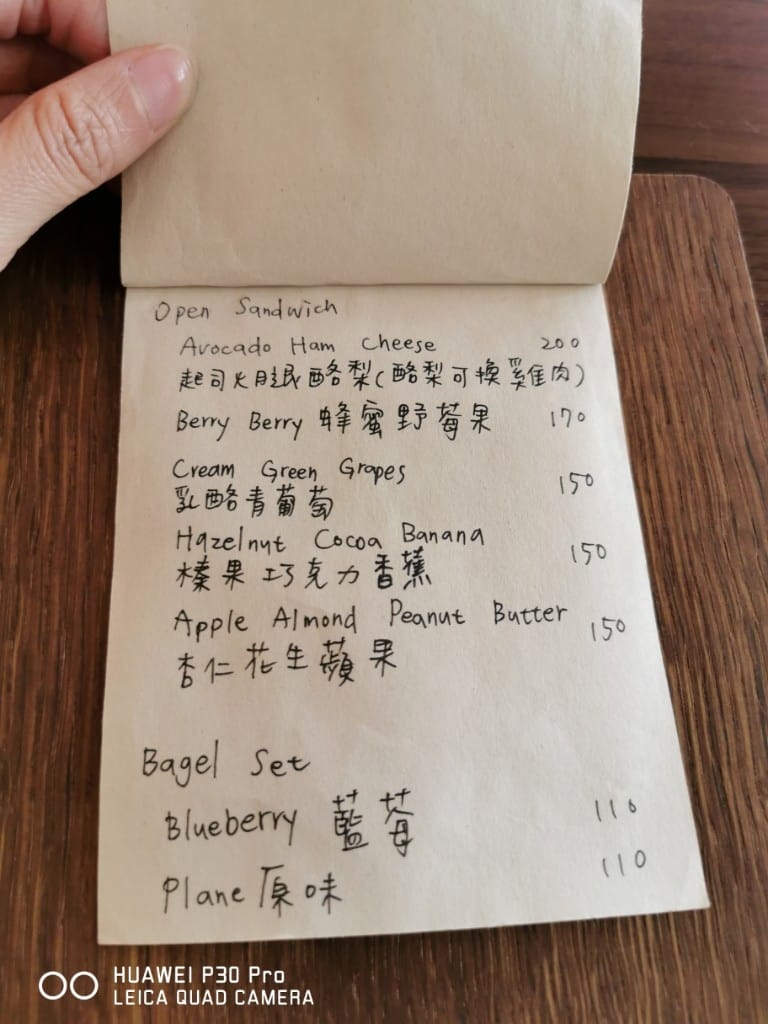 Open Sandwich
Avocado Ham Cheese 200
起司火腿酪梨(酪梨可換雞肉)
Berry Berry 蜂蜜野莓果 170
Cream Green Grapes 150
乳酪青葡萄
Hazelnut Cocoa Banana 150
榛果巧克力香蕉
Apple Almond Peanut Butter 150
杏仁花生蘋果
Bagel Set
Blueberry 藍莓 110
Plane 原味 110
HUAWEI P30 Pro
LEICA QUAD CAMERA